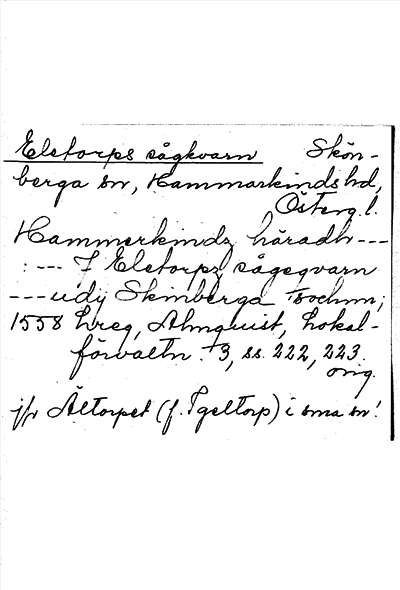 Eletorps sågkvarn Skön-
berga sn, Hammarkinds hd,
Österg. l.
Hammerkindz häradh ---
: --- J Eletorpz sågeqvarn
--- udij Skinberga sochnn;
1558 Lreg, Almquist, Lokal-
förvaltn. 3, ss. 222, 223.
orig.
jfr Ältorpet (f. Igeltorp) i sma sn!